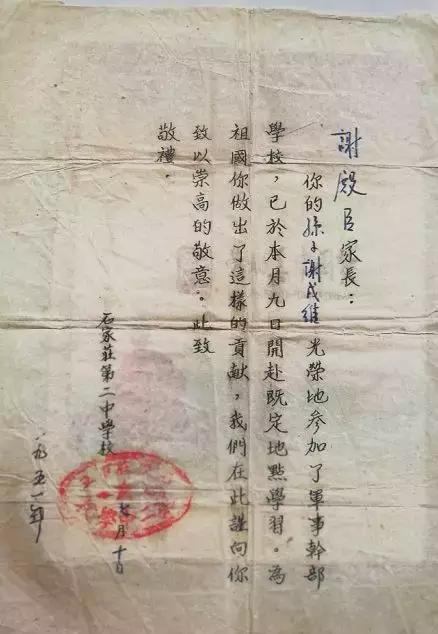 謝殿臣家長：
你的孫子謝成維光榮地參加了軍事幹部
學校，已於本月九日開赴既定地點學習。為
祖國你做出了這樣的貢獻，我們在此謹向你
致以崇高的敬意。此致
敬禮．
石家莊第二中學校
一九五一年七月十日